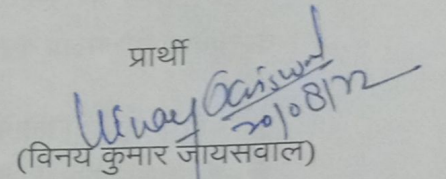 प्रार्थी
Vinay Jaiswal
20/08/22
(विनय कुमार जायसवाल)